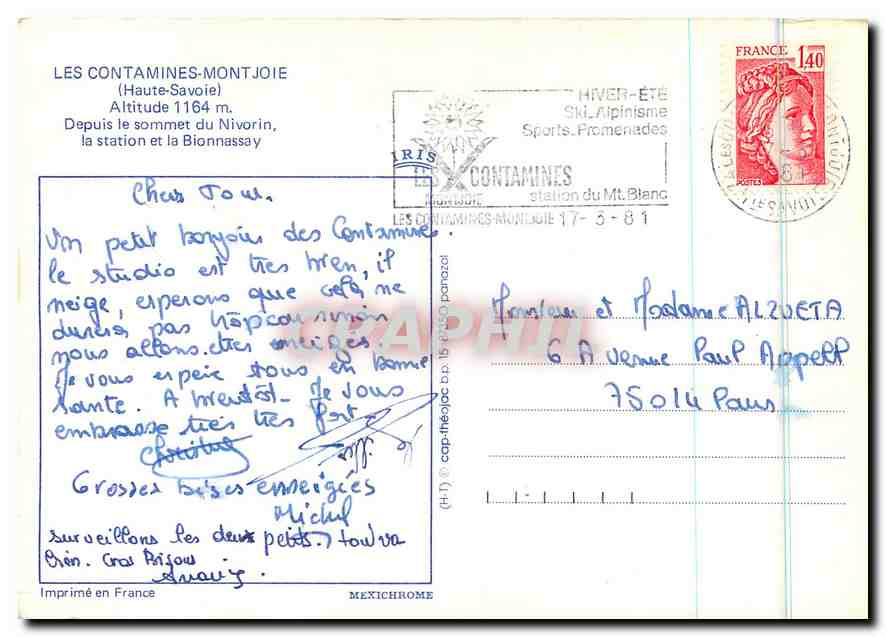 LES CONTAMINES-MONTJOIE
(Haute-Savoie)
Altitude 1164 m.
Depuis le sommet du Nivorin,
la station et la Bionnassay
HIVER-ÉTÉ
Ski_Alpinisme
Sports_Promenades
IRIS
LES CONTAMINES
MONTJOIE
station du Mt.Blanc
LES CONTAMINES-MONTJOIE 17- 3 - 81
FRANCE
1,40
POSTES
Chers Tous.
Un petit bonjour des Contamines.
le studio est tres bien, il
neige, esperons que cela ne
durera pas trop car sinon
nous allons etre enneigés
Je vous espere tous en bonne
sante. A bientôt_ Je vous
embrasse tres tres fort
Grosses bises enneigées
Michel
surveillons les deux petits. tout va
bien. Gros Bisous
Monsieur et Madame ALZUETA
6 Avenue Paul Appell
75014 Paris
(H-T) © cap-théojac b.p. 15-87350 panazol
CPAPHIL
Imprimé en France
MEXICHROME